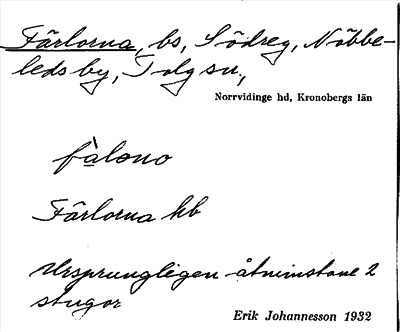 Färlorna, bs, Södreg, Nöbbe-
leds by, Tolg sn,
Norrvidinge hd, Kronobergs län
fàlono
Färlorna hb
Ursprungligen åtminstone 2
stugor
Erik Johannesson 1932